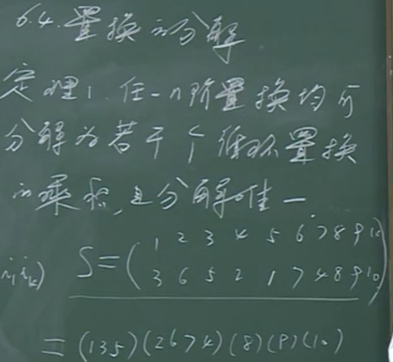 6.4. 置换的分解
定理1. 任一n阶置换均可
分解为若干个循环置换
的乘积,且分解唯一
S=( 1 2 3 4 5 6 7 8 9 10
3 6 5 2 1 7 4 8 9 10 )
=(135)(2674)(8)(9)(10)